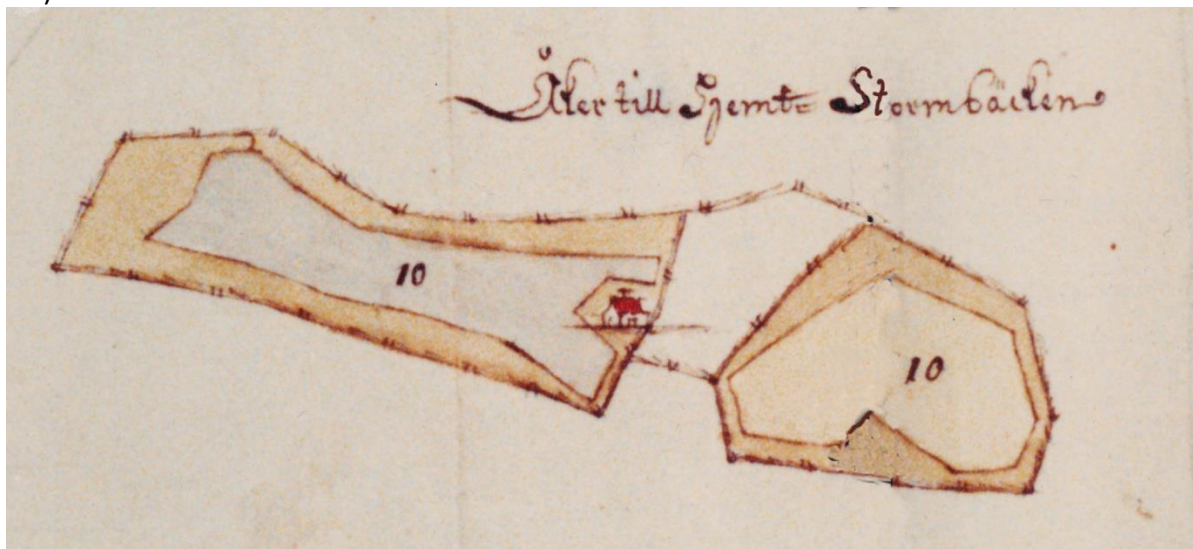 Åker till Hemt= Stormbäcken
10
10